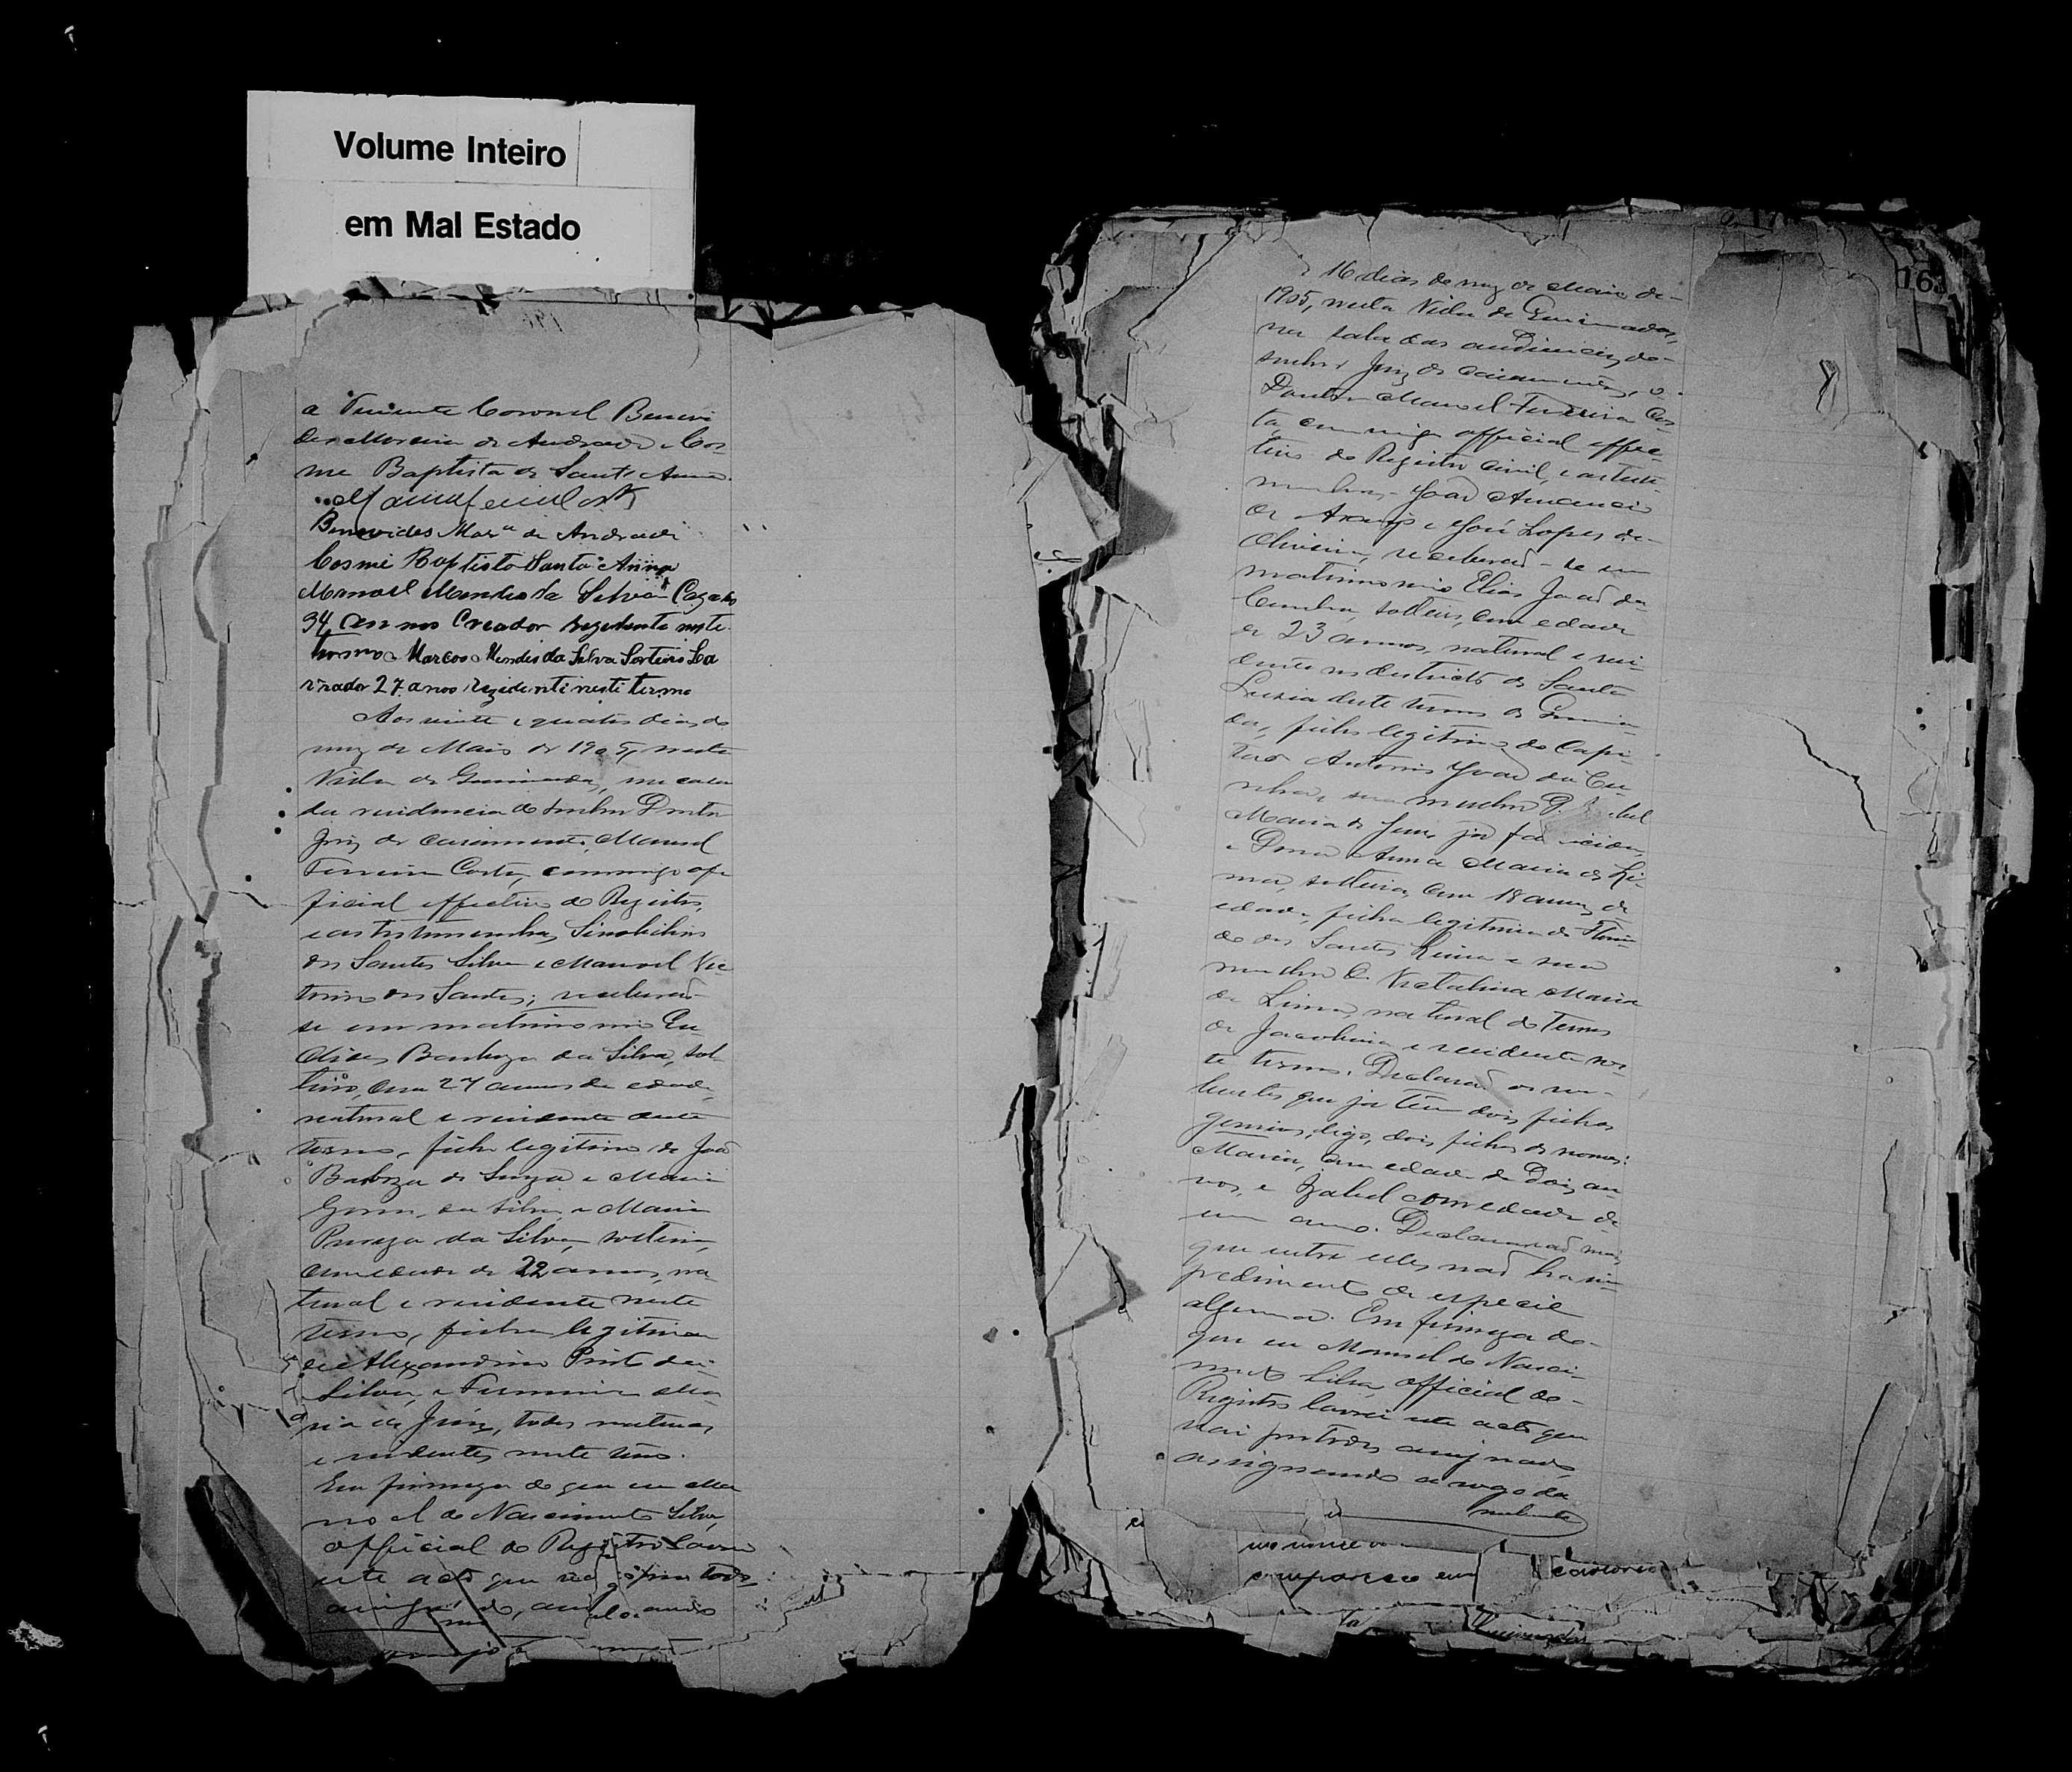 Volume Inteiro
em Mal Estado
a Tenente Coronel Benevi
des Moreira de Andrade e Cos-
me Baptista de Sant'Anna.
Benevides Mora de Andrade
Cosme Baptista Santa Anna
Manoel Mendes da Silva Cazado
34 annos Creador rezedente neste
termo Marcos Mendes da Silva Sorteiro La
vrador 27 anos rezidente neste termo
Aos vinte e quatro dias do
mez de Maio de 1905, nesta
Villa de Queimadas, em casa
da residencia do senhor Doutor
Juiz de casamentos, Manoel
Ferreira Costa, commigo of
ficial effectivo do Registro,
e as testemunhas,
dos Santos Silva e Manoel Vic
torino dos Santos; receberaõ-
se em matrimonio Eu
clides Barboza da Silva, sol
teiro, com 27 annos de edade,
natural e residente deste
termo, filho legitimo de Joaõ
Barboza de Souza e Maria
da Silva e Maria
da Silva, solteira,
com edade de 22 annos, na
tural e residente neste
termo, filha legitima
de Alexandrino Pinto da
Silva, e Firmina Ma
ria de Jesus, todos naturaes
e residentes neste termo.
Em firmeza do que eu Ma
noel do Nascimento Silva,
official do Registro lavrei
este acto que vae por todos
assignado,
163
16 dias do mez de Maio de
1905, nesta Villa de Queimadas,
na sala das audiencias do
senhor Juiz de casamentos, o
Doutor Manoel Ferreira Cos
ta, commigo official effec-
tivo do Registro Civil, e as teste-
munhas, Joaõ Amancio
de Araujo e José Lopes de
Oliveira, receberaõ-se em
matrimonio Elias Joaõ da
Cunha, solteiro, com edade
de 23 annos, natural e resi-
dente no districto de Santa
Luzia deste termo de Queima-
das, filho legitimo do Capi-
taõ Antonio Joaõ da Cu
nha, e sua mulher D.
Maria de Jesus, já fallecida,
e Dona Anna Maria de Li-
ma, solteira, com 18 annos de
edade, filha legitima de
do dos Santos Lima e sua
mulher D. Maria
de Lima, natural do Termo
de Jacobina e residente nes-
te termo. Declaraõ os nu-
bentes que já têm dois filhos
gemeos, digo, dois filhos de nomes:
Maria, com edade de Dois an
nos, e Izabel com edade de
um anno. Declararaõ mais
que entre elles naõ ha im-
pedimento de especie
alguma. Em firmeza do
que eu Manoel do Nasci-
mento Silva, official do
Registro lavrei este acto que
vai por todos assignado,
assignando a rogo da
nubente
compareceo em cartorio
Queimadas